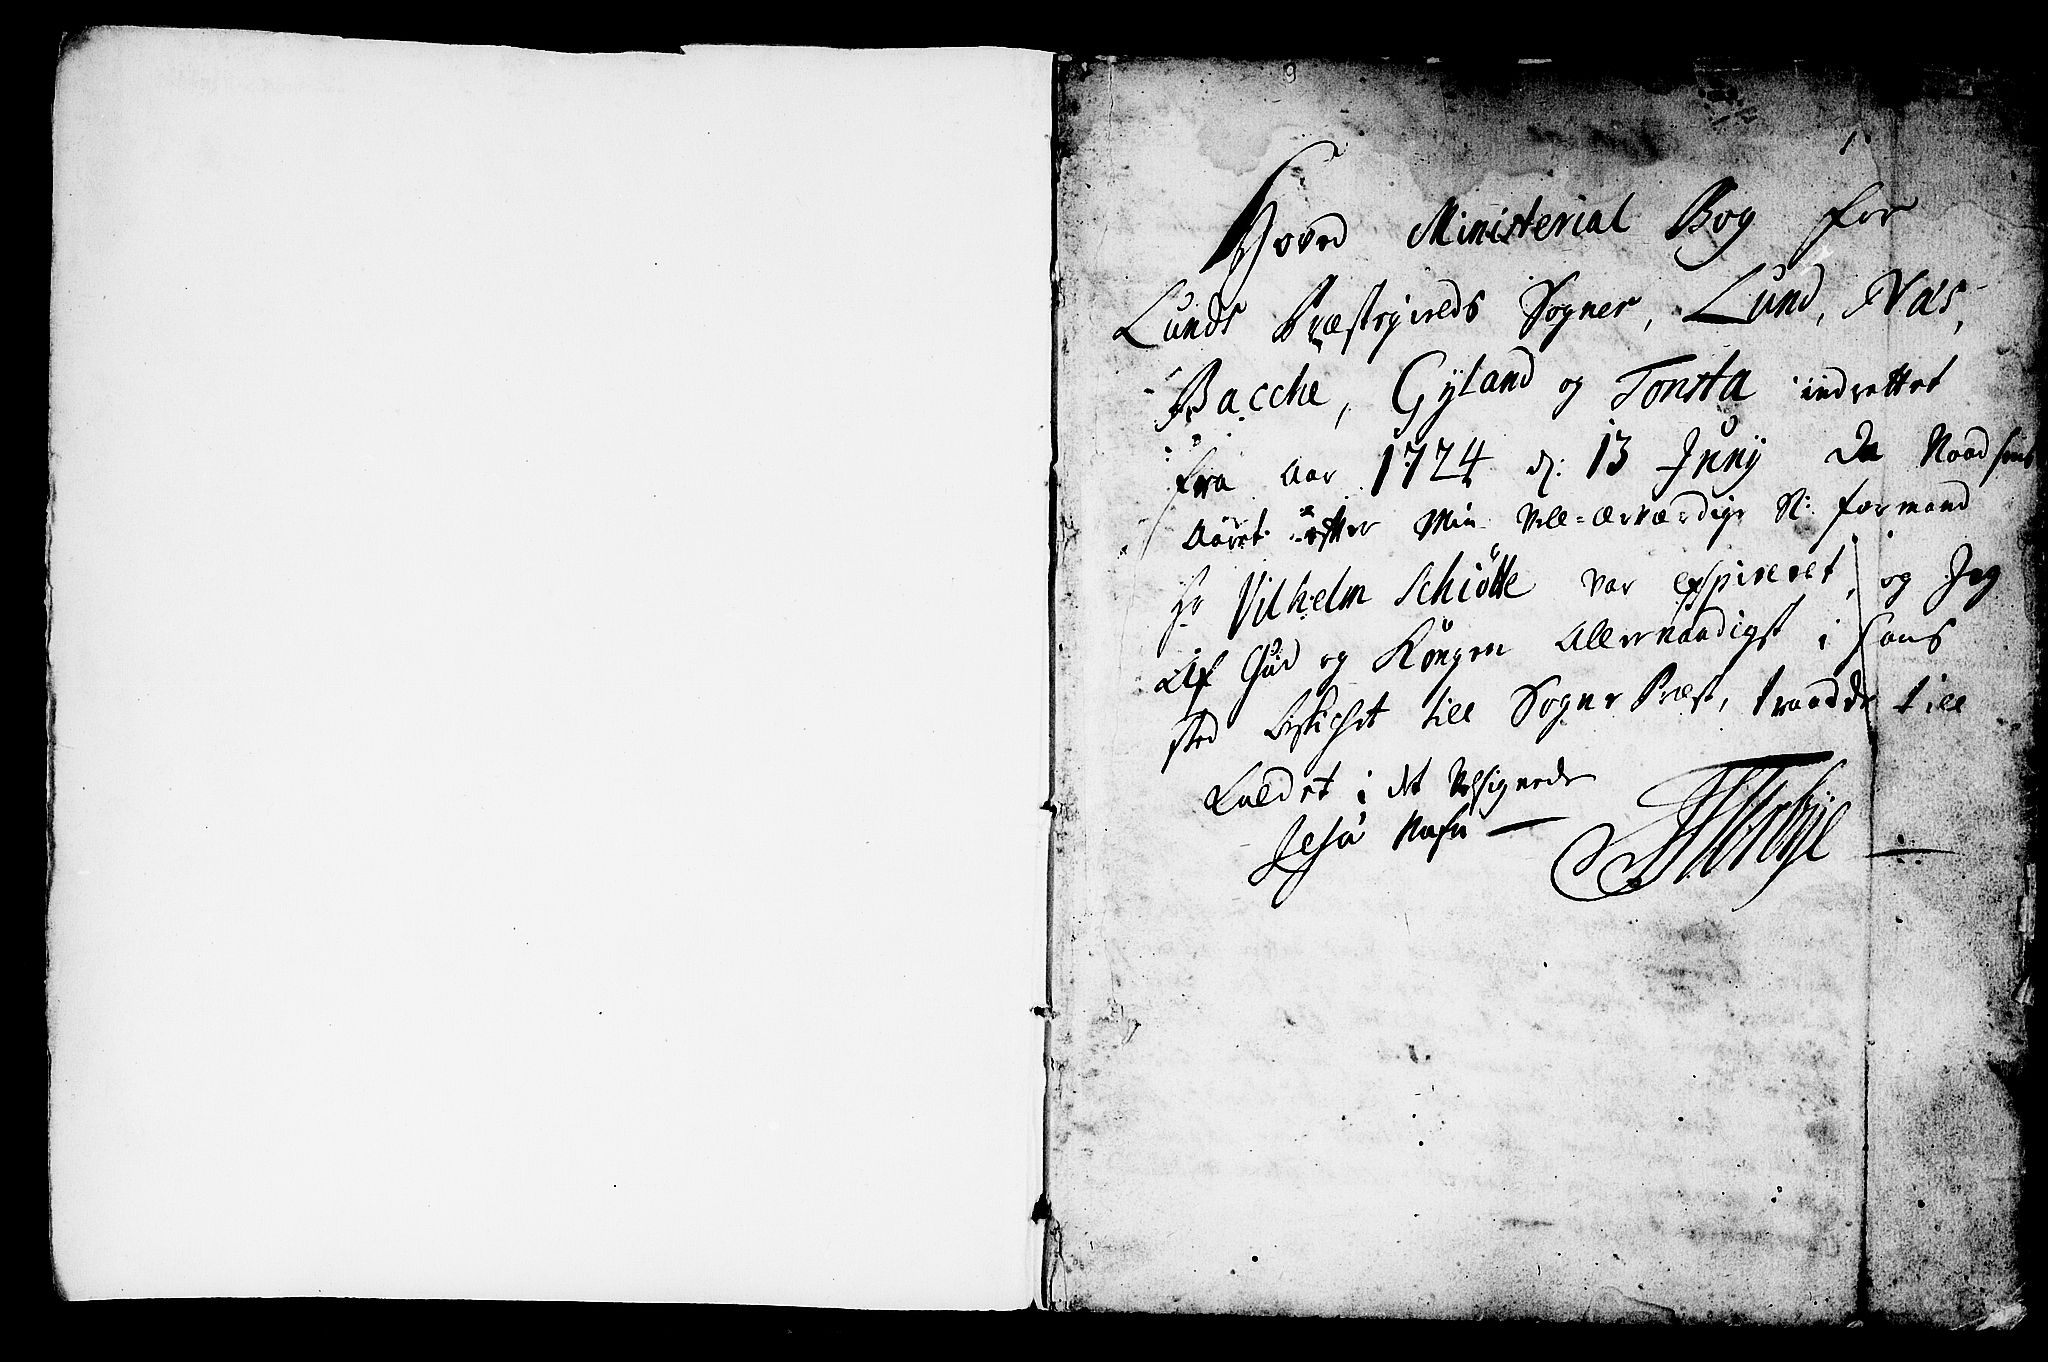 Hoved Ministerial Bog for
Lunds Præstegields Sogner, Lund, Næs,
Bacche, Gyland og Tonsta indrettet
fra Aar 1724 d: 13 Juny da Naadsens
Aaret efter Min Vell-ærværdige S: formand
Hr Vilhelm Schiötte var expireret, og Jeg
Af Gud og Kongen Allernaadigst i hans
sted beskichet till Sogne Præst, traadde till
Kaldet i det Velsignede
Jesu Nafn —